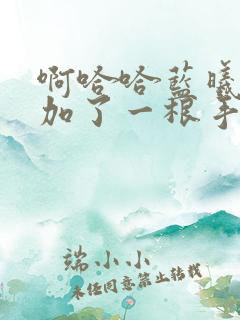 啊哈哈蓝曦
加了一根手
端小小
未经同意禁止转载